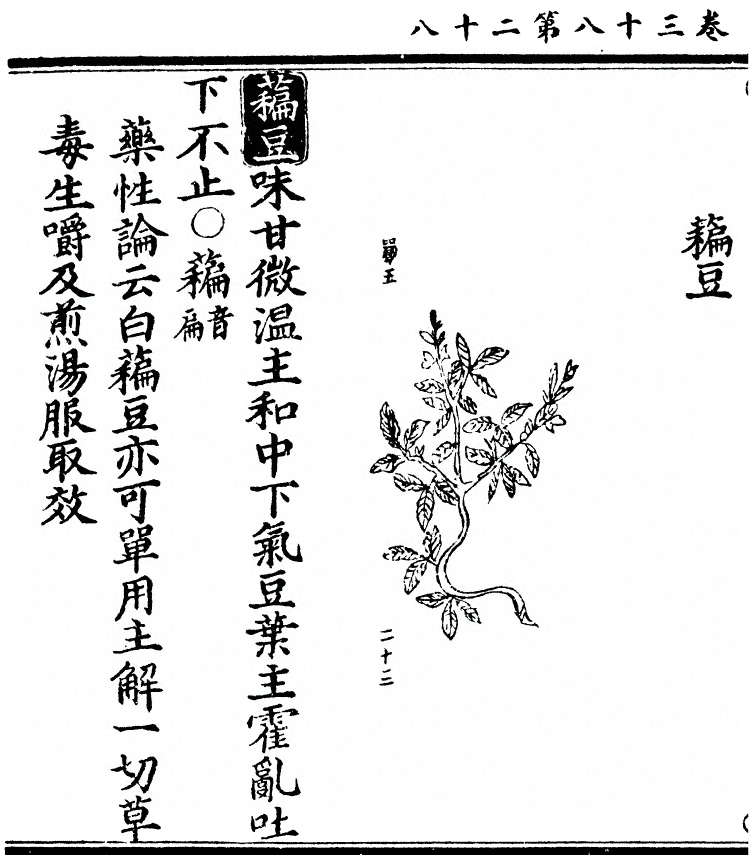 卷三十八第二十八
藊豆
五
二十二
藊豆味甘微温主和中下氣豆葉主霍亂吐
下不止○藊音扁
藥性論云白藊豆亦可單用主解一切草
毒生嚼及煎湯服取效